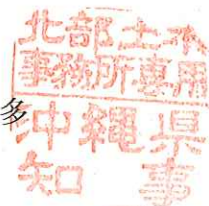 北部土木
事務所専用
沖縄県
知事
多